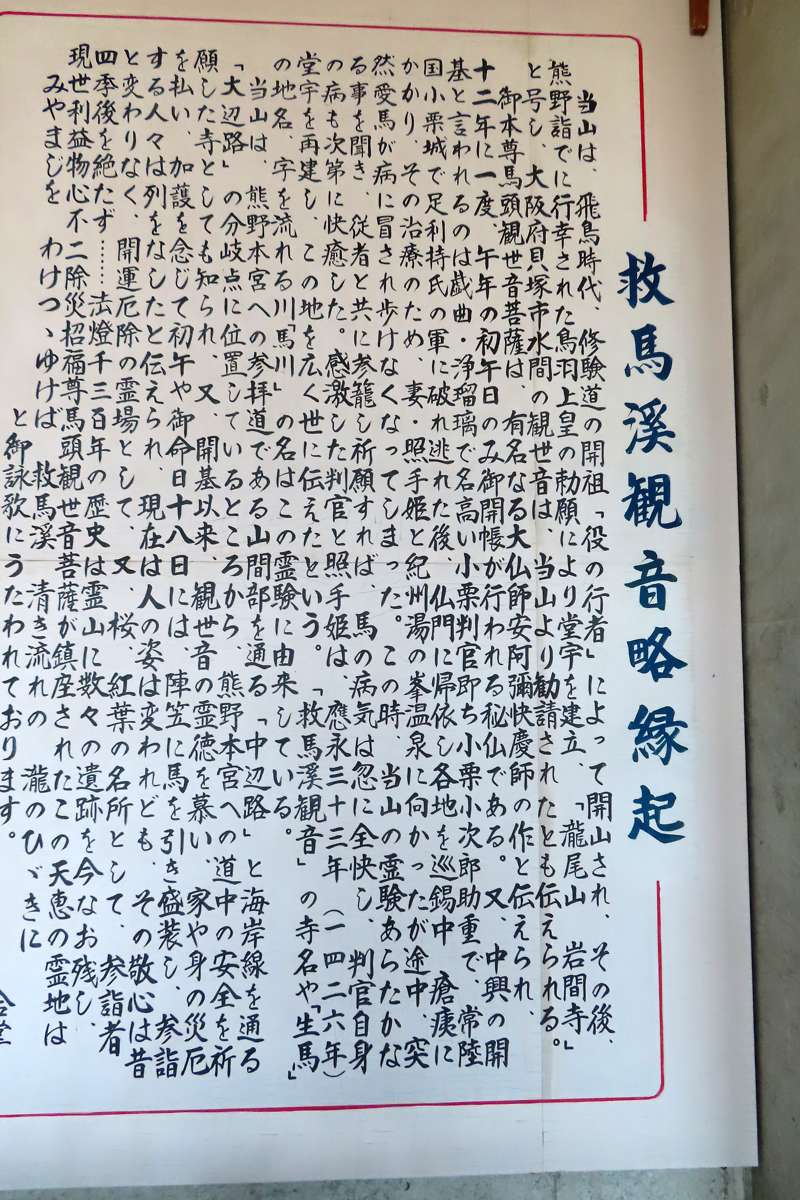 救馬溪観音略縁起
当山は、飛鳥時代、修験道の開祖「役の行者」によって開山され、その後、
熊野詣でに行幸された鳥羽上皇の勅願により堂宇を建立、「龍尾山 岩間寺」
と号し、大阪府貝塚市水間の観世音は、当山より勧請されたとも伝えられる。
御本尊馬頭観世音菩薩は、有名なる大仏師安阿彌快慶師の作と伝えられ、
十二年に一度、午年の初午日のみ御開帳が行われる秘仏である。又、中興の開
基と言われるのは戯曲・浄瑠璃で名高い小栗判官即ち小栗小次郎助重で、常陸
国小栗城で足利持氏の軍に破れ逃れた後、仏門に帰依し各地を巡錫中、瘡痍に
かかり、その治療のため、妻・照手姫と紀州湯の峯温泉に向かったが途中、突
然愛馬が病に冒され歩けなくなってしまった。この時、当山の霊験あらたかな
る事を聞き、従者と共に参籠し祈願すれば、馬の病気は忽に全快し、判官自身
の病も次第に快癒した。感激した判官と照手姫は、應永三十三年(一四二六年)
堂宇を再建し、この地を広く世に伝えたという。「救馬溪観音」の寺名や「生馬」
の地名、字を流れる川「馬川」の名はこの霊験に由来している。
当山は、熊野本宮への参拝道である山間部を通る「中辺路」と海岸線を通る
「大辺路」の分岐点に位置しているところから、熊野本宮への道中の安全を祈
願した寺としても知られ、又、開基以来、観世音の霊徳を慕い、家や身の災厄
を払い、加護を念じて初午や御命日十八日には、陣笠に馬を引き盛装し、参詣
する人々は列をなしたと伝えられ、現在は人の姿は変われども、その敬心は昔
と変わりなく、開運厄除の霊場として、又、桜、紅葉の名所として、参詣者
四季後を絶たず……法燈千三百年の歴史は霊山に数々の遺跡を今なお残し、
現世利益物心不二除災招福尊馬頭観世音菩薩が鎮座されたこの天恵の霊地は
みやまじを わけつゝゆけば 救馬溪 清き流れの 瀧のひゞきに
と御詠歌にうたわれております。